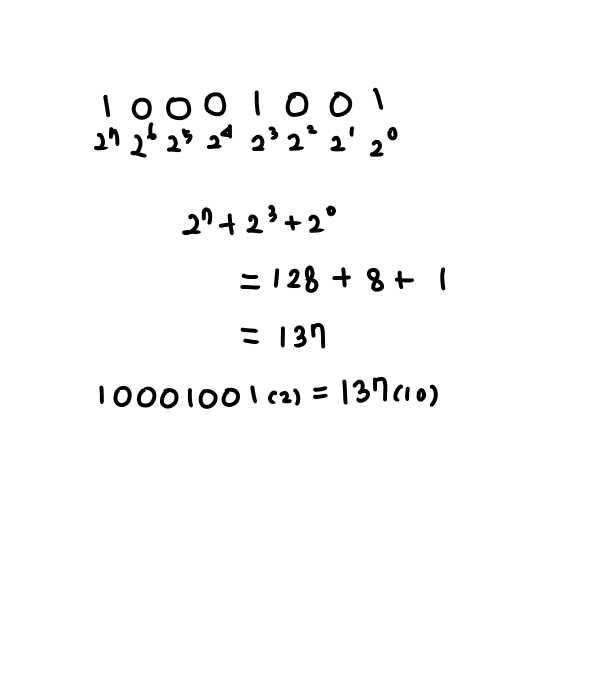 1 0 0 0 1 0 0 1
2⁷ 2⁶ 2⁵ 2⁴ 2³ 2² 2¹ 2⁰
2⁷ + 2³ + 2⁰
= 128 + 8 + 1
= 137
10001001(2) = 137(10)